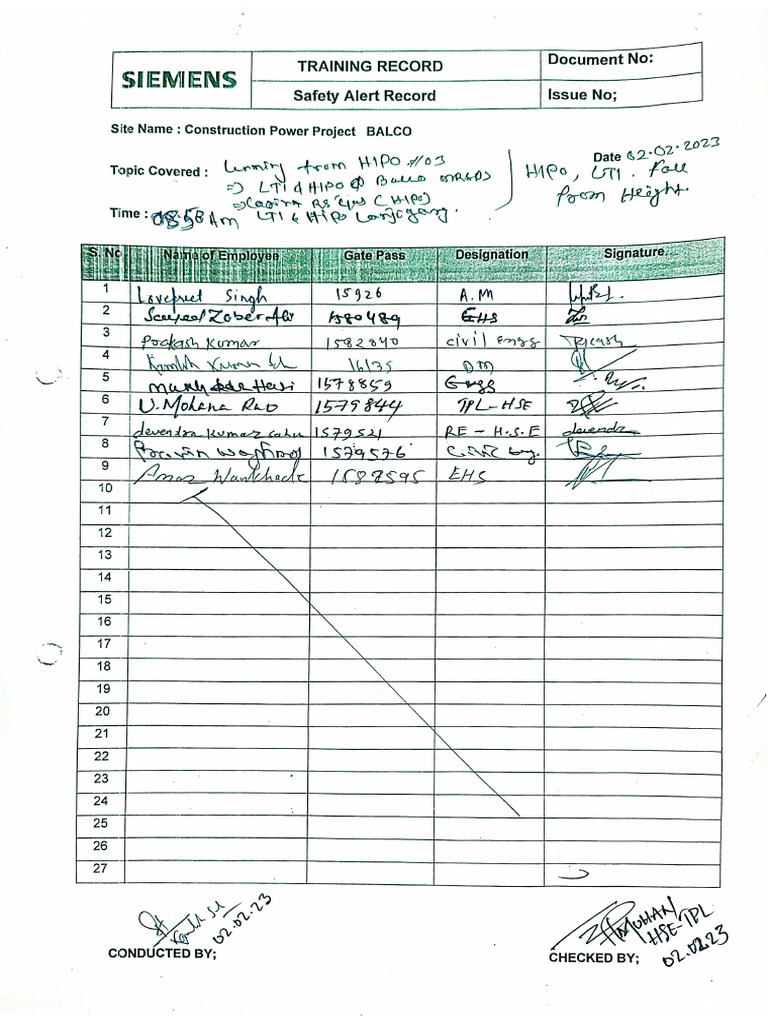 SIEMENS
TRAINING RECORD
Document No:
Safety Alert Record
Issue No;
Site Name : Construction Power Project BALCO
Date 02.02.2023
Topic Covered : from HIPO #03
HIPO, LTI. Fall
=> LTI & HIPO Balco
from Height.
(HIPO)
Time : 08:58 Am LTI & HIPO
S. No Name of Employee Gate Pass Designation Signature
1 Lovepreet Singh 15926 A.M
2 Sayeed Zober Ali 1580489 EHS
3 Prakash Kumar 1582840 civil engg Prakash
4 Kumar 16135 DM
5 1578859 Engg
6 U. Mohana Rao 1579844 TPL-HSE
7 devendra Kumar sahu 1579521 RE - H.S.E devendra
8 Pravin 1579576
9 Wankhade 1587595 EHS
10
11
12
13
14
15
16
17
18
19
20
21
22
23
24
25
26
27
02.02.23
MOHAN
HSE-TPL
02.02.23
CONDUCTED BY;
CHECKED BY;